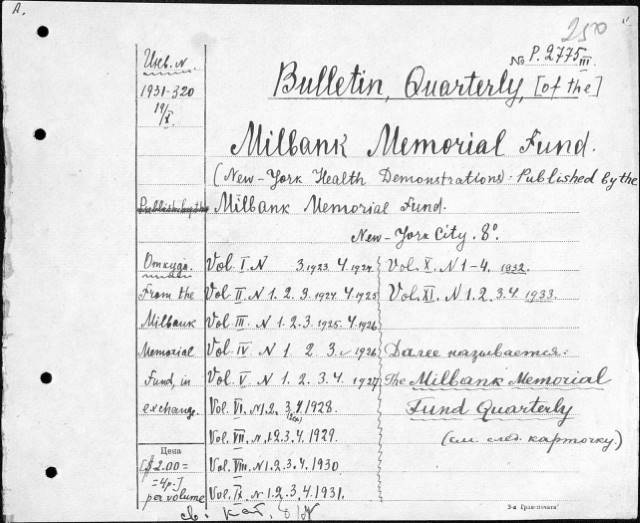 A.
250
№ P. 2775 III
Инв. N
1931-320
19/X.
Bulletin, Quarterly, [of the]
Milbank Memorial Fund.
(New-York Health Demonstrations. Published by the
Milbank Memorial Fund.
New-York City. 8°.
Откуда.
From the
Milbank
Memorial
Fund, in
exchange.
Vol. I. N 3. 1923. 4. 1924.
Vol. II. N 1. 2. 3. 1924. 4. 1925
Vol. III. N 1. 2. 3. 1925. 4. 1926
Vol. IV N 1 2 3. 1926
Vol. V N 1. 2. 3. 4. 1927
Vol. VI. N 1. 2. 3. 4. 1928.
Vol. VII. N. 1. 2. 3. 4. 1929.
Vol. VIII. N 1. 2. 3. 4. 1930
Vol. IX. N 1. 2. 3. 4. 1931.
Vol. X. N 1-4. 1932.
Vol. XI. N 1. 2. 3. 4. 1933.
Далее называется:
The Milbank Memorial
Fund Quarterly
(см. след. карточку.)
Цена
[$2.00=
=4р.]
per volume
3-я Граф-печать